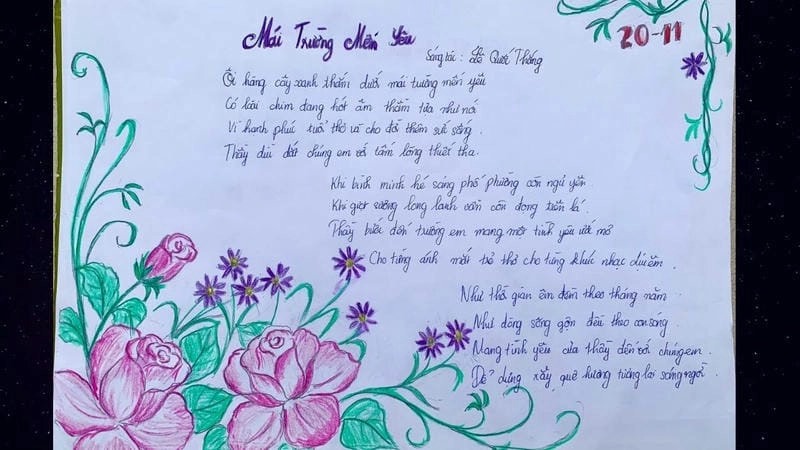 Mái Trường Mến Yêu
20-11
Sáng tác : Lê Quốc Thắng
Ôi hàng cây xanh thắm dưới mái trường mến yêu
Có loài chim đang hót âm thầm tựa như nói
Vì hạnh phúc tuổi thơ và cho đời thêm sức sống .
Thầy dìu dắt chúng em với tấm lòng thiết tha .
Khi bình minh hé sáng phố phường còn ngủ yên
Khi giọt sương long lanh vẫn còn đọng trên lá .
Thầy bước đến trường em mang một tình yêu ước mơ
Cho từng ánh mắt trẻ thơ cho từng khúc nhạc dịu êm .
Như thời gian êm đềm theo tháng năm
Như dòng sông gợn đều theo con sóng .
Mang tình yêu của thầy đến với chúng em .
Để dựng xây quê hương tương lai sáng ngời .